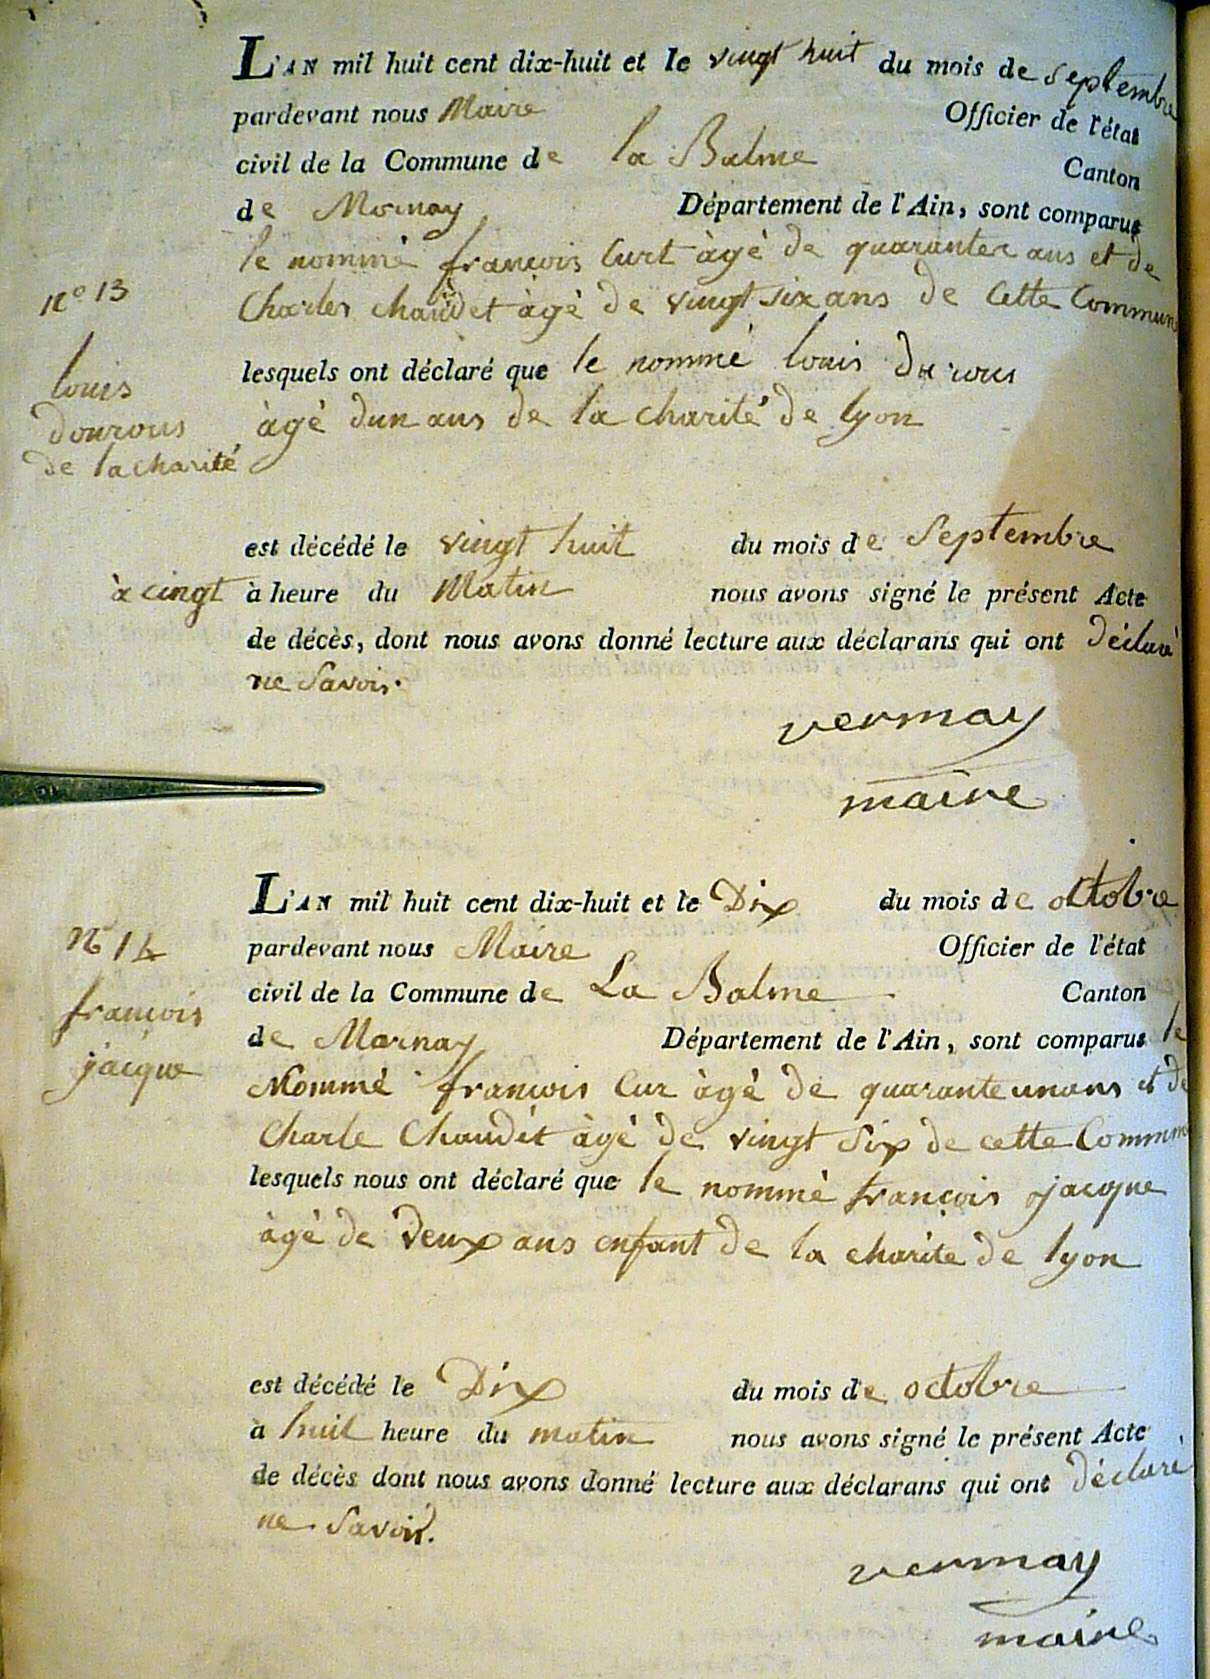 L'AN mil huit cent dix-huit et le vingt huit du mois de septembre
pardevant nous Maire Officier de l'état
civil de la Commune de la Balme Canton
de Mornay Département de l'Ain, sont comparus
le nommé françois Curt àgé de quarante ans et de
Charles chaudet àgé de vingt six ans de Cette Commun
nº 13
louis
dourous
de la charité
lesquels ont déclaré que le nommé louis du rous
àgé dun ans de la charité de lyon
est décédé le vingt huit du mois de Septembre
à cingt à heure du Matin nous avons signé le présent Acte
de décès, dont nous avons donné lecture aux déclarans qui ont Déclaré
ne Savoir.
vermay
maire
L'AN mil huit cent dix-huit et le Dix du mois de octobre
nº 14
françois
jacque
pardevant nous Maire Officier de l'état
civil de la Commune de La Balme Canton
de Marnay Département de l'Ain, sont comparus le
Nommé françois Cur àgé de quarante un ans et de
Charle Chaudét àgé de vingt Six de cette Commun
lesquels nous ont déclaré que le nommé françois jacque
àgé de Deux ans enfant de la charite de lyon
est décédé le Dix du mois de octobre
à huit heure du matin nous avons signé le présent Acte
de décès dont nous avons donné lecture aux déclarans qui ont déclaré
ne Savoir.
vermay
maire